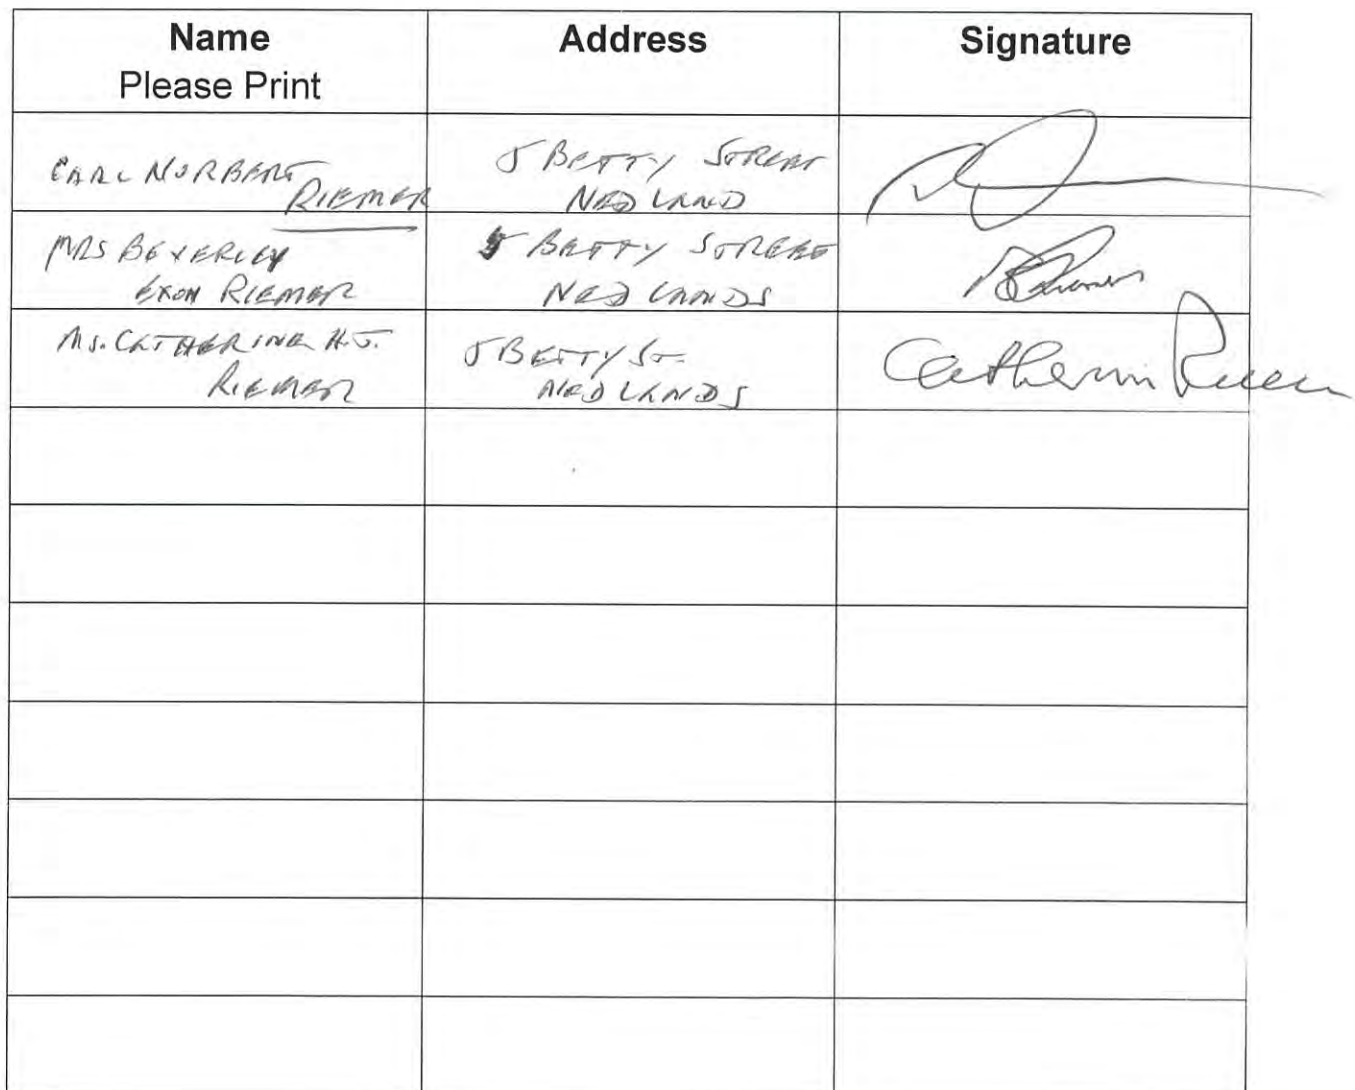 Name
Please Print
Address
Signature
CARL NORBERT
RIEMER
5 BETTY STREET
NEDLAND
MRS BEVERLEY
EXON RIEMER
5 BETTY STREET
NEDLANDS
MS. CATHERINE H.J.
RIEMER
5 BETTY ST.
NEDLANDS
Catherin